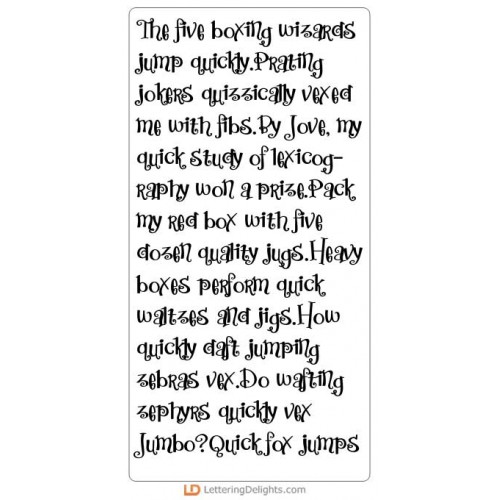 The five boxing wizards
jump quickly.Prating
jokers quizzically vexed
me with fibs.By Jove, my
quick study of lexicog-
raphy won a prize.Pack
my red box with five
dozen quality jugs.Heavy
boxes perform quick
waltzes and jigs.How
quickly daft jumping
zebras vex.Do wafting
zephyrs quickly vex
Jumbo?Quick fox jumps
LD LetteringDelights.com